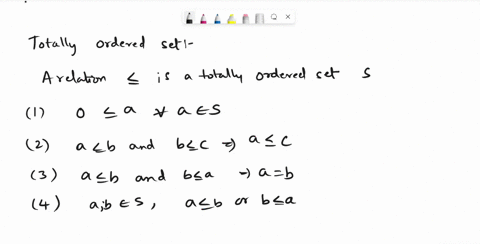 Totally ordered set:-
A relation ≤ is a totally ordered set S
(1) 0 ≤ a ∀ a ∈ S
(2) a ≤ b and b ≤ c ⇒ a ≤ c
(3) a ≤ b and b ≤ a → a = b
(4) a, b ∈ S, a ≤ b or b ≤ a